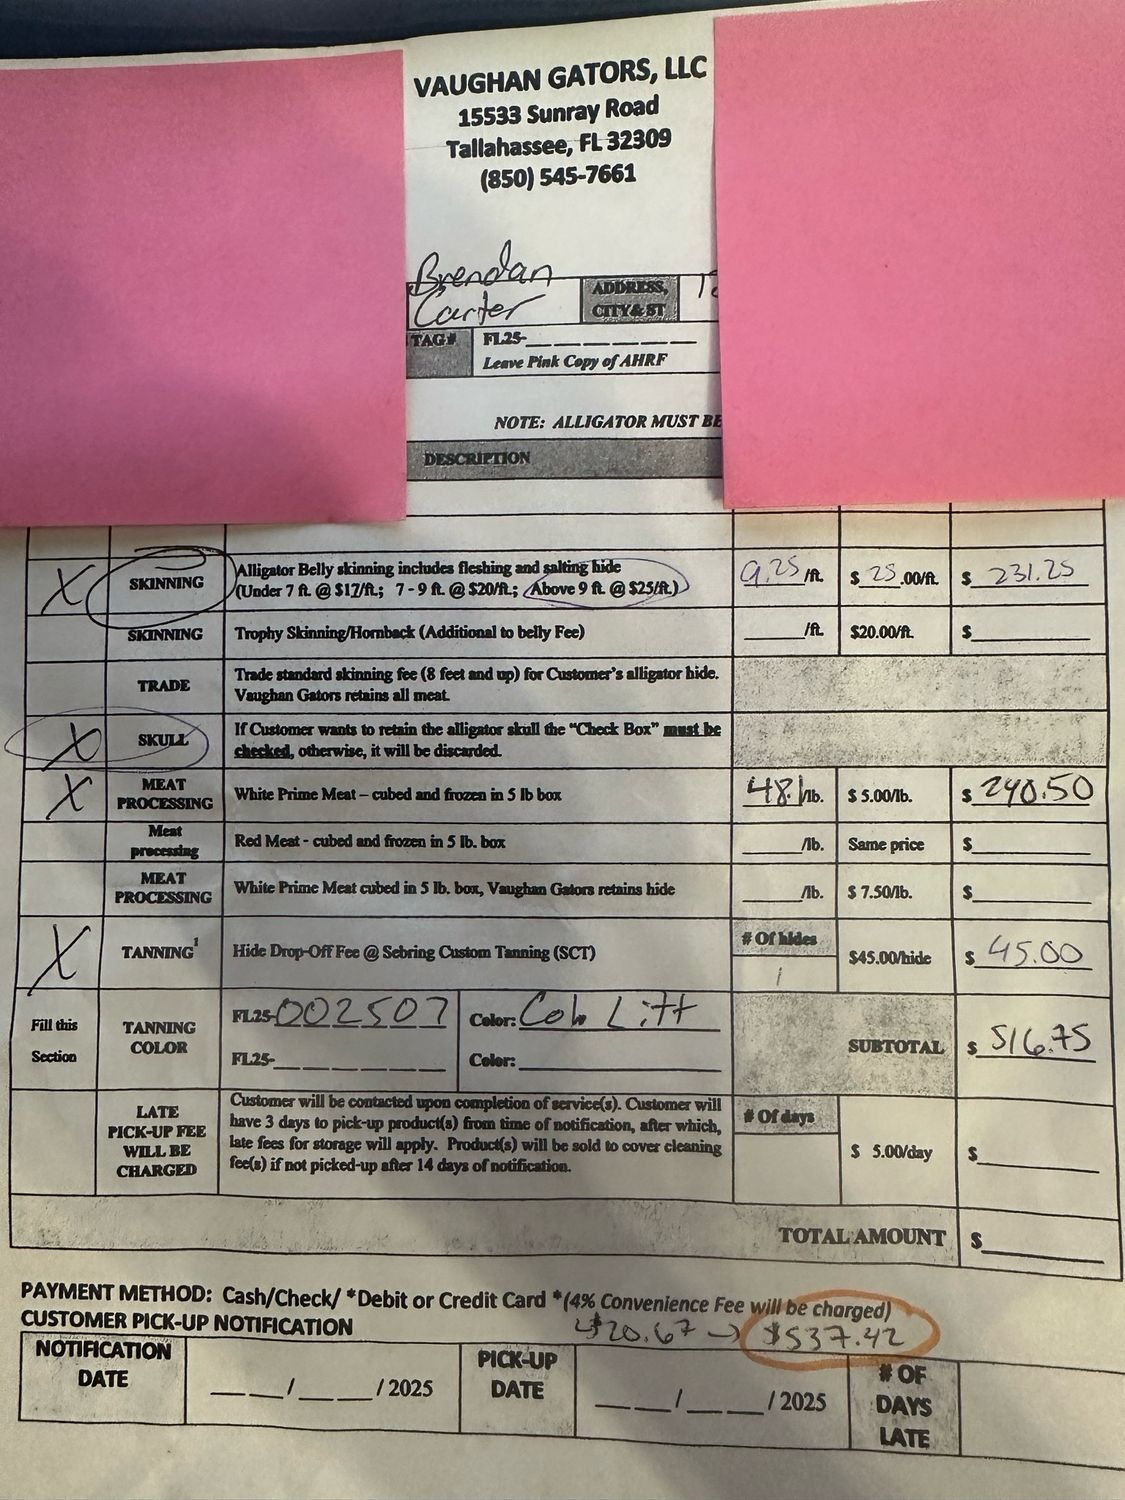 VAUGHAN GATORS, LLC
15533 Sunray Road
Tallahassee, FL 32309
(850) 545-7661
Brendan
Carter
ADDRESS,
CITY & ST
TAG#
FL25-_ _ _ _ _ _
Leave Pink Copy of AHRF
NOTE: ALLIGATOR MUST BE
DESCRIPTION
X
SKINNING
Alligator Belly skinning includes fleshing and salting hide
(Under 7 ft. @ $17/ft.; 7 - 9 ft. @ $20/ft.; Above 9 ft. @ $25/ft.)
9.25 /ft.
$ 25.00/ft.
$ 231.25
SKINNING
Trophy Skinning/Hornback (Additional to belly Fee)
______/ft.
$20.00/ft.
$________
TRADE
Trade standard skinning fee (8 feet and up) for Customer's alligator hide.
Vaughan Gators retains all meat.
X
SKULL
If Customer wants to retain the alligator skull the "Check Box" must be
checked, otherwise, it will be discarded.
X
MEAT
PROCESSING
White Prime Meat – cubed and frozen in 5 lb box
48.1/lb.
$ 5.00/lb.
$ 240.50
Meat
processing
Red Meat - cubed and frozen in 5 lb. box
______/lb.
Same price
$________
MEAT
PROCESSING
White Prime Meat cubed in 5 lb. box, Vaughan Gators retains hide
______/lb.
$ 7.50/lb.
$________
X
TANNING¹
Hide Drop-Off Fee @ Sebring Custom Tanning (SCT)
# Of hides
1
$45.00/hide
$ 45.00
Fill this
Section
TANNING
COLOR
FL25-002507
Color:
FL25-_ _ _ _ _ _
Color:________
SUBTOTAL
$ 516.75
LATE
PICK-UP FEE
WILL BE
CHARGED
Customer will be contacted upon completion of service(s). Customer will
have 3 days to pick-up product(s) from time of notification, after which,
late fees for storage will apply. Product(s) will be sold to cover cleaning
fee(s) if not picked-up after 14 days of notification.
# Of days
$ 5.00/day
$________
TOTAL AMOUNT
$________
PAYMENT METHOD: Cash/Check/ *Debit or Credit Card *(4% Convenience Fee will be charged)
CUSTOMER PICK-UP NOTIFICATION
$20.67 → $537.42
NOTIFICATION
DATE
_ _/_ _/2025
PICK-UP
DATE
_ _/_ _/2025
# OF
DAYS
LATE